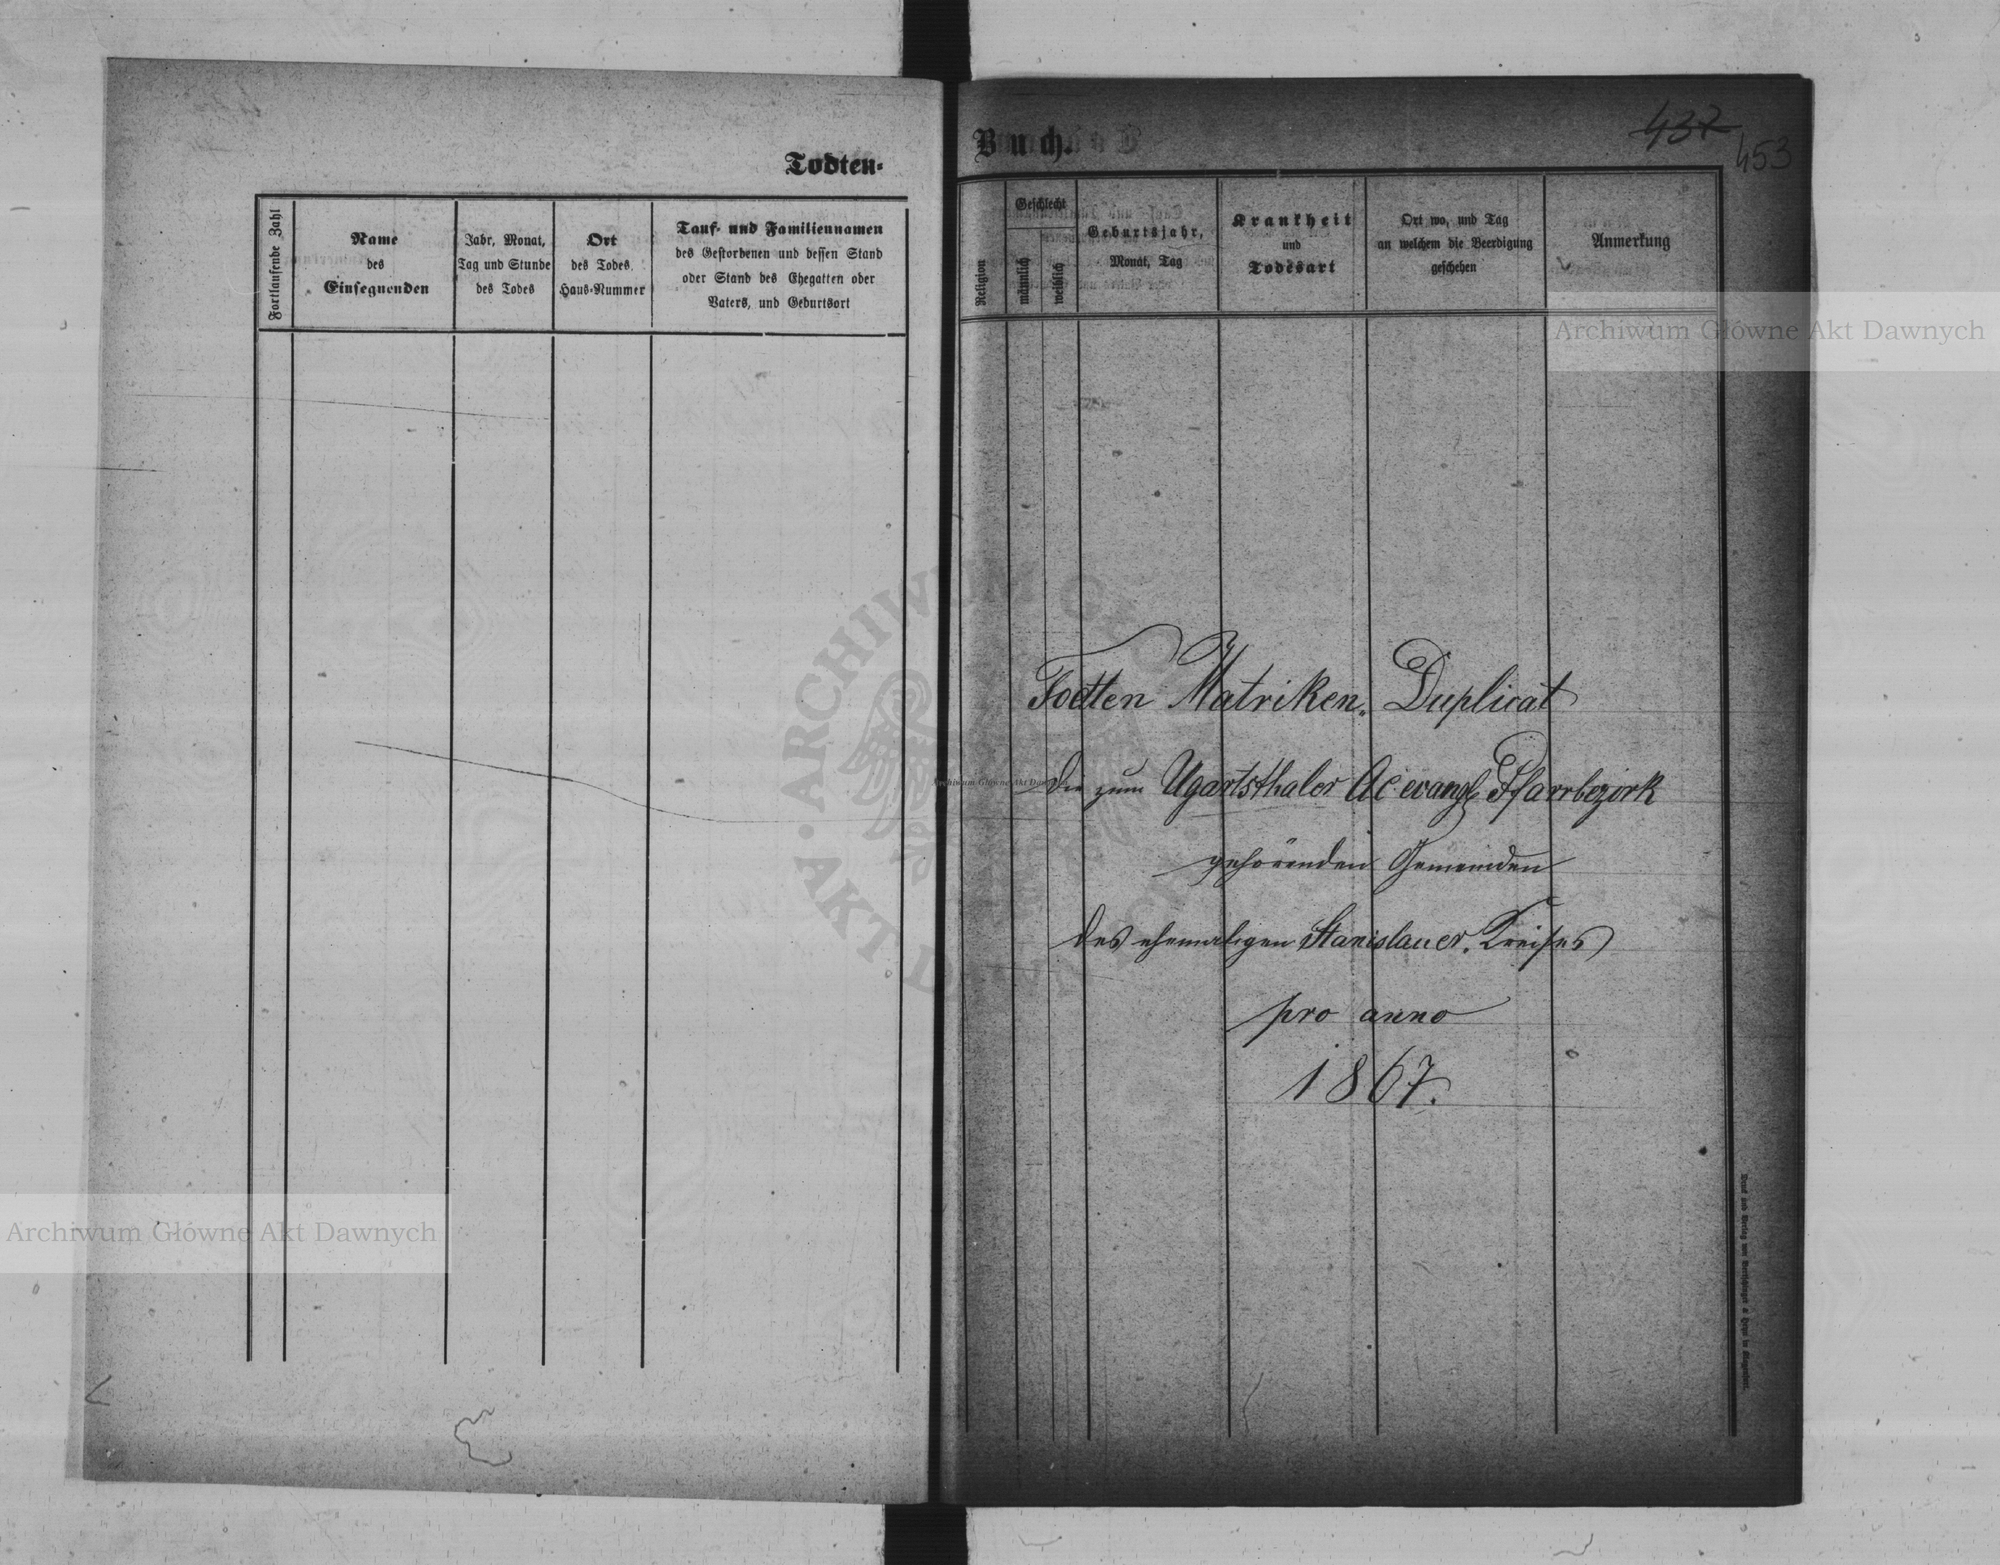 Todten-
Fortlaufende Zahl
Name
des
Einsegnenden
Jahr, Monat,
Tag und Stunde
des Todes
Ort
des Todes.
Haus-Nummer
Tauf- und Familiennamen
des Gestorbenen und dessen Stand
oder Stand des Ehegatten oder
Vaters, und Geburtsort
Buch.
437
453
Religion
Geschlecht
männlich
weiblich
Geburtsjahr,
Monat, Tag
Krankheit
und
Todesart
Ort wo, und Tag
an welchem die Beerdigung
geschehen
Anmerkung
Archiwum Główne Akt Dawnych
Todten Matriken. Duplicat
Die zum Ugartsthaler Ac. evangl. Pfarrbezirk
Archiwum Główne Akt
gehörenden Gemeinden
des ehemaligen Stanislauer. Kreises
pro anno
1867.
ARCHIWUM
AKT
Archiwum Główne Akt Dawnych